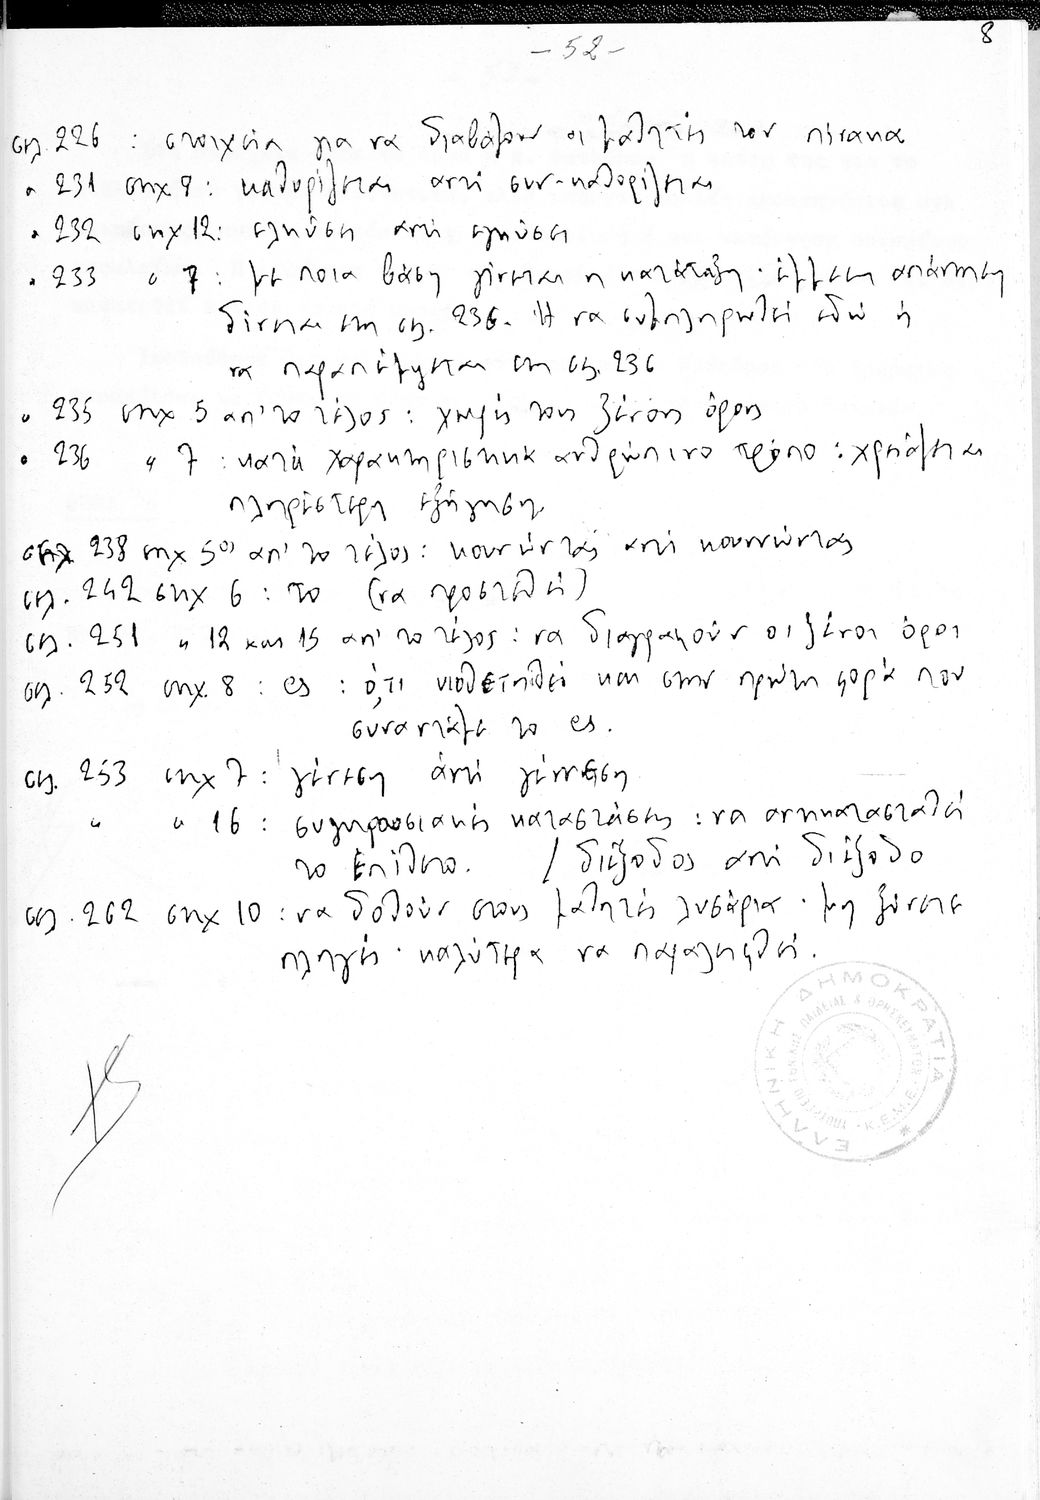 8
- 52 -
σελ. 226 : στοιχεία για να διαβάζουν οι μαθητές τον πίνακα
" 231 στιχ 8 : καθορίζεται αντί συν-καθορίζεται
" 232 στιχ 12: εκπύση αντί
" 233 " 7 : με ποια βάση γίνεται η κατάταξη · έμμεση απάντηση
δίνεται στη σελ. 236. Ή να συμπληρωθεί εδώ ή
να παραπέμψεται στη σελ. 236
" 235 στιχ 5 απ' το τέλος : χωρίς τους ξένους όρους
" 236 " 7 : κατά χαρακτηριστικά ανθρώπινο τρόπο : χρειάζεται
πληρέστερη εξήγηση.
σελ 238 στιχ 5ος απ' το τέλος : κουνώντας αντί κουννώντας
σελ. 242 στιχ 6 : το (να προστεθεί)
σελ. 251 " 12 και 15 απ' το τέλος : να διαγραφούν οι ξένοι όροι
σελ. 252 στιχ. 8 : es : ό,τι υιοθετηθεί και στην πρώτη φορά που
συναντάμε το es.
σελ. 253 στιχ 7 : γένεση αντί γέννεση
" " 16 : συγκρουσιακής καταστάσης : να αντικατασταθεί
το επίθετο. / διέξοδος αντί διέξοδο
σελ. 262 στιχ 10 : να δοθούν στους μαθητές λυσάρια · μη ξύνετε
πληγές · καλύτερα να παραλειφθεί.
ΕΛΛΗΝΙΚΗ ΔΗΜΟΚΡΑΤΙΑ
ΠΑΙΔΕΙΑΣ & ΘΡΗΣΚΕΥΜΑΤΩΝ
Κ.Ε.Μ.Ε.